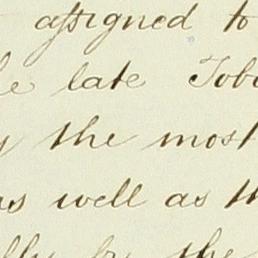 assigned to
late
the most
as well as th
by the